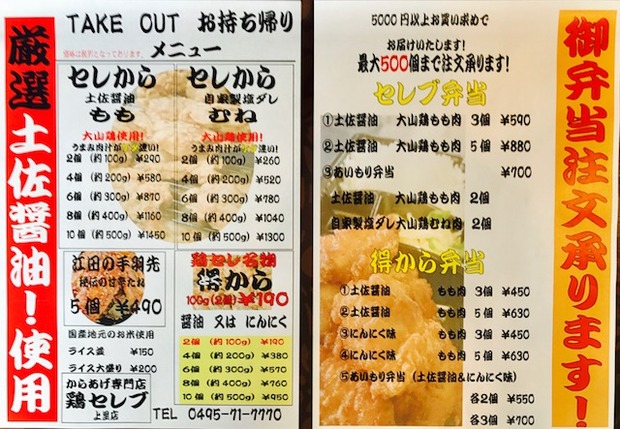 厳選土佐醤油!使用
TAKE OUT お持ち帰り
メニュー
価格は税別となっております。
セレから
土佐醤油
もも
大山鶏使用!
うまみ肉汁が 違い!
2個 (約100g) ¥290
4個 (約200g) ¥580
6個 (約300g) ¥870
8個 (約400g) ¥1160
10個 (約500g) ¥1450
セレから
自家製塩ダレ
むね
大山鶏使用!
うまみ肉汁が 違い!
2個 (約100g) ¥260
4個 (約200g) ¥520
6個 (約300g) ¥780
8個 (約400g) ¥1040
10個 (約500g) ¥1300
江田の手羽先
秘伝の甘辛たれ
5個/¥490
国産地元のお米使用
ライス並 ¥150
ライス大盛り ¥200
からあげ専門店
鶏セレブ
上里店
鶏セレ名物
得から
100g(2個) ¥190
醤油 又は にんにく
2個 (約100g) ¥190
4個 (約200g) ¥380
6個 (約300g) ¥570
8個 (約400g) ¥760
10個 (約500g) ¥950
TEL 0495-71-7770
5000円以上お買い求めで
お届けいたします!
最大500個まで注文承ります!
セレブ弁当
①土佐醤油 大山鶏もも肉 3個 ¥590
②土佐醤油 大山鶏もも肉 5個 ¥880
③あいもり弁当 ¥700
土佐醤油 大山鶏もも肉 2個
自家製塩ダレ大山鶏むね肉 2個
得から弁当
①土佐醤油 もも肉 3個 ¥450
②土佐醤油 もも肉 5個 ¥630
③にんにく味 もも肉 3個 ¥450
④にんにく味 もも肉 5個 ¥630
⑤あいもり弁当 (土佐醤油&にんにく味)
各2個 ¥550
各3個 ¥700
御弁当注文承ります!